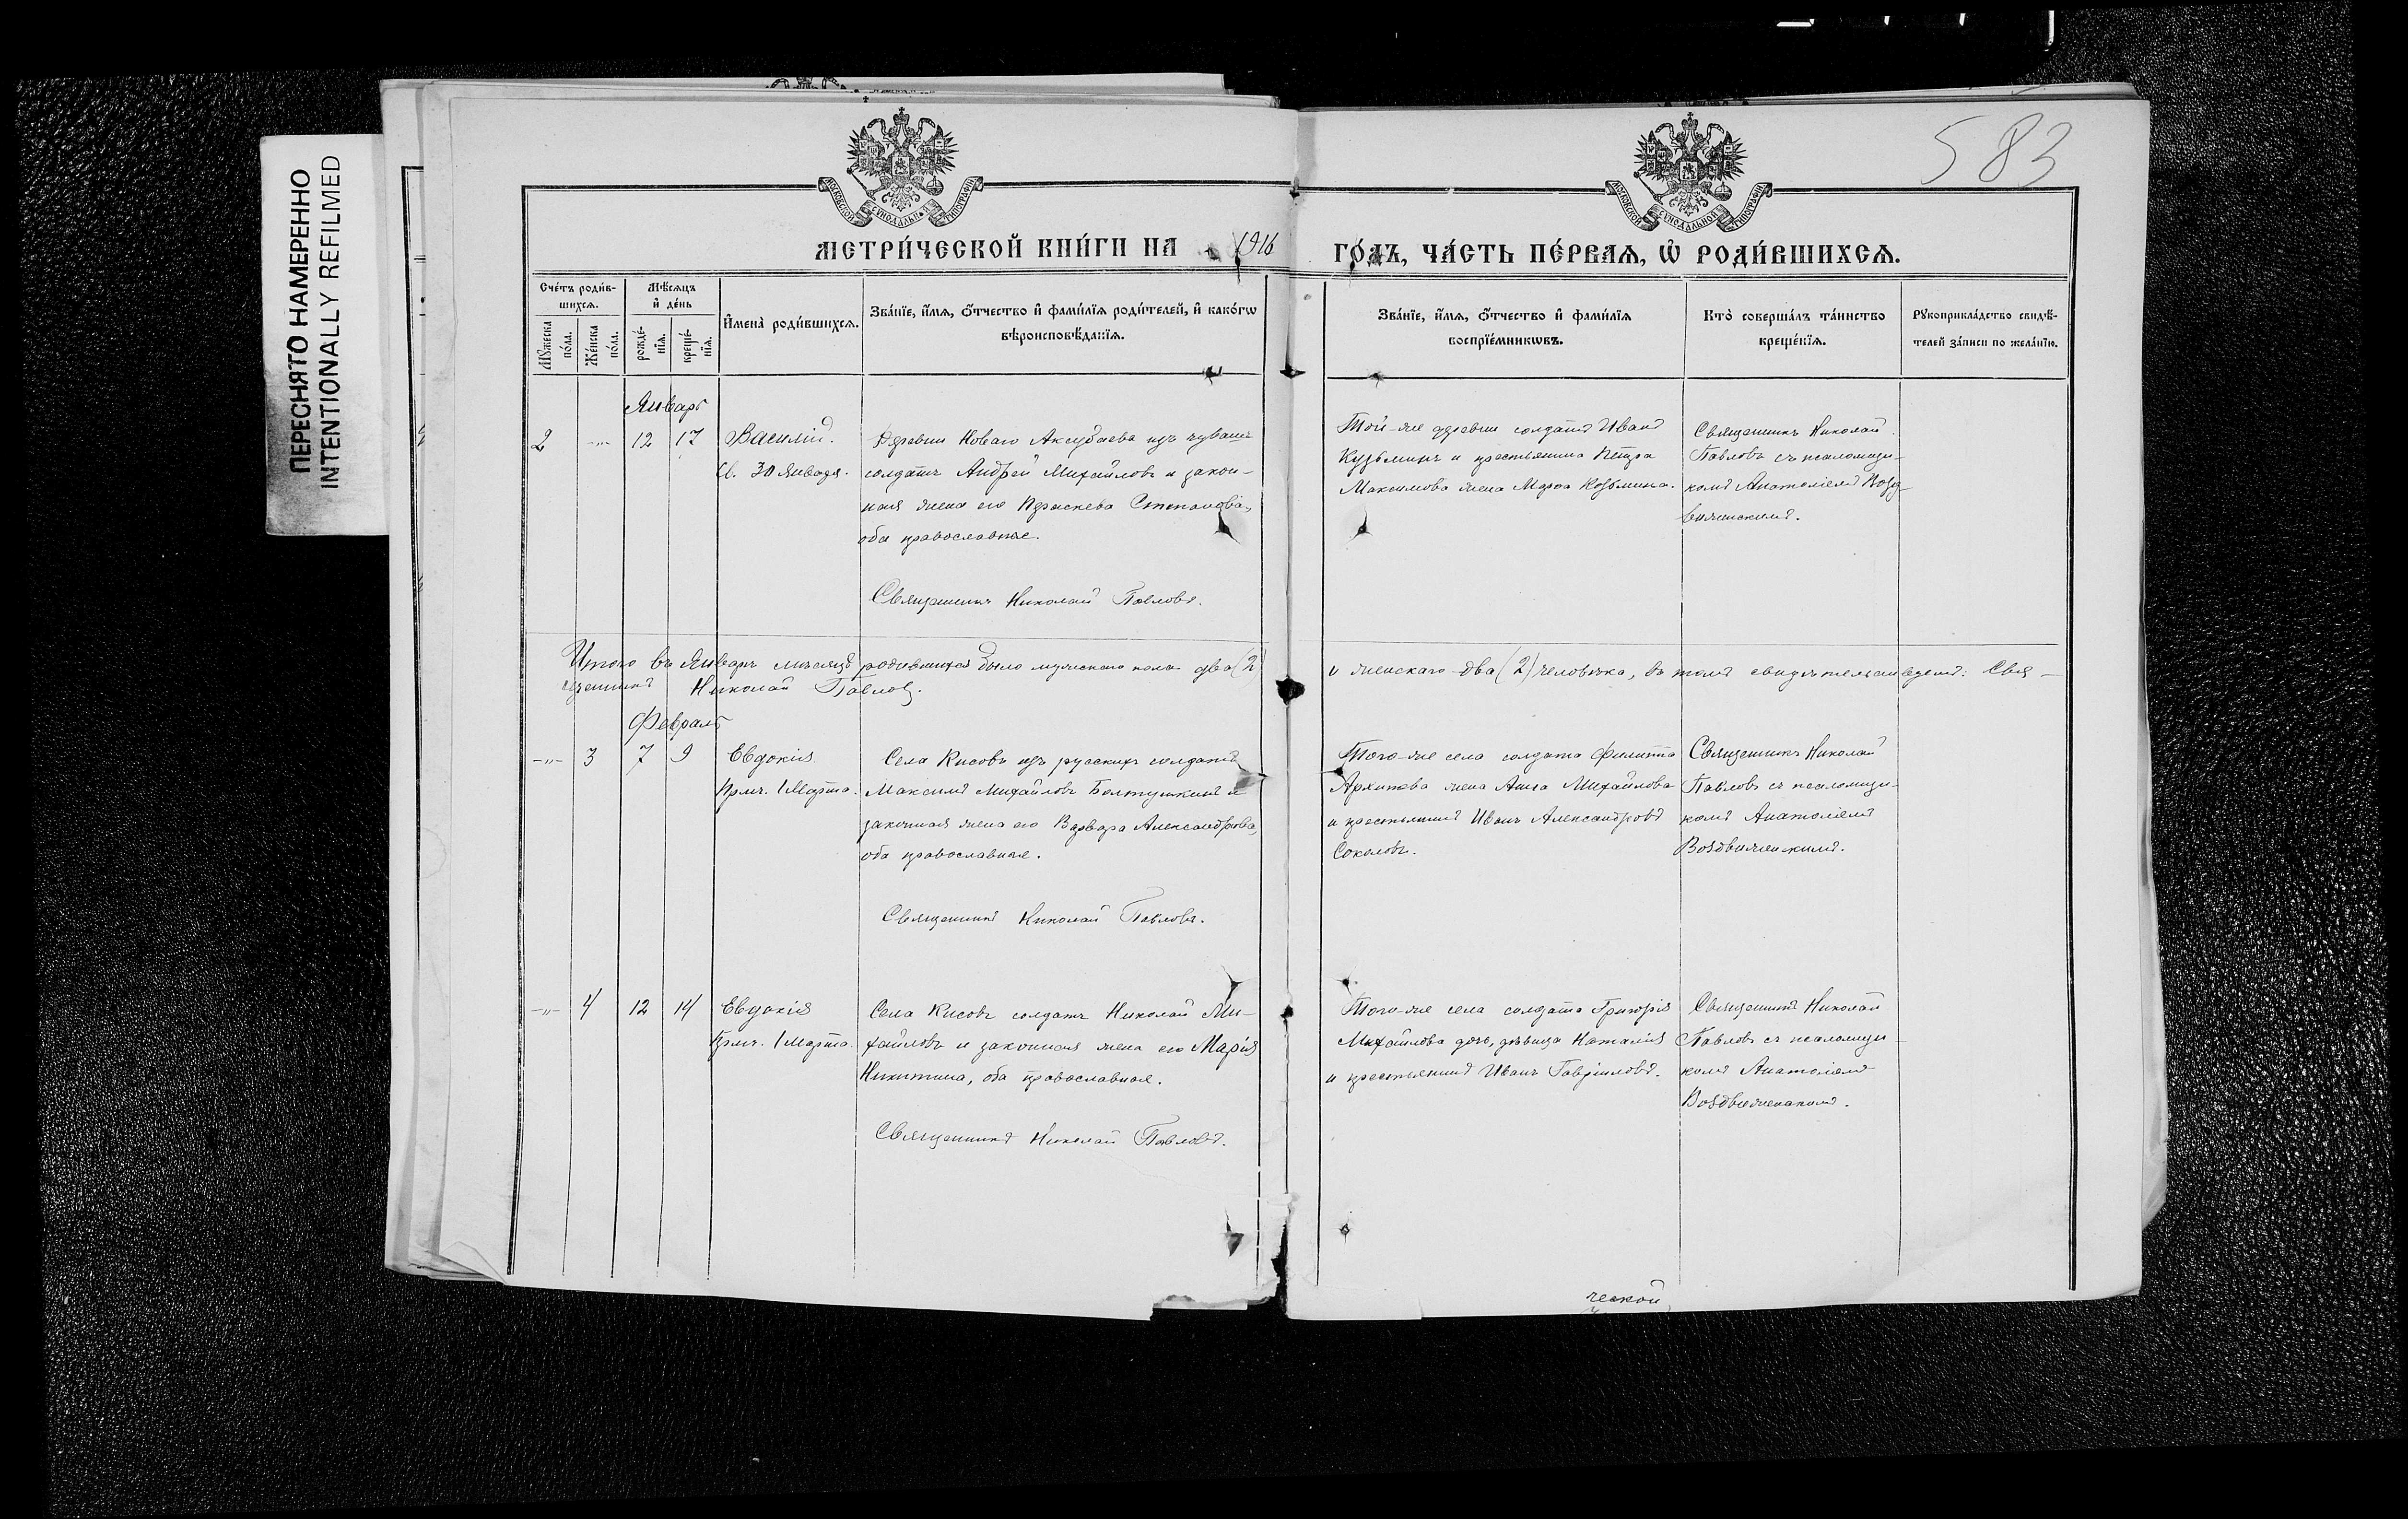 ПЕРЕСНЯТО НАМЕРЕННО
INTENTIONALLY REFILMED
583
МОСКОВСКОЙ СѴНОДАЛЬНОЙ ТИПОГРАФІИ
МОСКОВСКОЙ СѴНОДАЛЬНОЙ ТИПОГРАФІИ
МЕТРИ́ЧЕСКОЙ КНИ́ГИ НА 1916 ГО́ДЪ, ЧА́СТЬ ПЕ́РВАѦ, Ѡ҆ РОДИ́ВШИХСѦ.
Сче́тъ роди́в-
шихсѧ.
Мꙋжеска по́ла.
Же́нска по́ла.
Мѣ́сѧцъ
и҆ де́нь
рожде́-
нїѧ.
креще́-
нїѧ.
И҆мена̀ роди́вшихсѧ.
Зва́нїе, и҆́мѧ, ѻ҆́тчество и҆ фами́лїѧ роди́телей, и҆ како́гѡ
вѣроисповѣ́данїѧ.
Зва́нїе, и҆́мѧ, ѻ҆́тчество и҆ фами́лїѧ
воспрїе́мникѡвъ.
Кто̀ соверша́лъ та́инство
креще́нїѧ.
Рꙋкоприкла́дство свидѣ́-
телей за́писи по жела́нїю.
Январь
2 -"- 12 17
Василій.
Св. 30 Января.
Деревни Новаго Аксубаева изъ чувашъ
солдатъ Андрей Михайловъ и закон-
ная жена его Параскева Степанова,
оба православные.
Священникъ Николай Павловъ.
Той-же деревни солдатъ Иванъ
Кузьминъ и крестьянина Петра
Максимова жена Марѳа Козьмина.
Священникъ Николай
Павловъ съ псаломщи-
комъ Анатоліемъ Возд-
виженскимъ.
Итого въ Январѣ мѣсяцѣ родившихся было мужескаго пола два (2) и женскаго два (2) человѣка, въ томъ свидѣтельствуемъ: Свя-
щенникъ Николай Павловъ.
Февраль
-"- 3 7 9
Евдокія
Прмч. 1 Марта.
Села Кисовъ изъ русскихъ солдатъ
Максимъ Михайловъ Болтушкинъ и
законная жена его Варвара Александрова,
оба православные.
Священникъ Николай Павловъ.
Того-же села солдата Филиппа
Архипова жена Анна Михайлова
и крестьянинъ Иванъ Александровъ
Соколовъ.
Священникъ Николай
Павловъ съ псаломщи-
комъ Анатоліемъ
Воздвиженскимъ.
-"- 4 12 14
Евдокія
Прмч. 1 Марта.
Села Кисовъ солдатъ Николай Ми-
хайловъ и законная жена его Марія
Никитина, оба православные.
Священникъ Николай Павловъ.
Того-же села солдата Григорія
Михайлова дочь, дѣвица Наталія
и крестьянинъ Иванъ Гавріиловъ.
Священникъ Николай
Павловъ съ псаломщи-
комъ Анатоліемъ
Воздвиженскимъ.
ческой